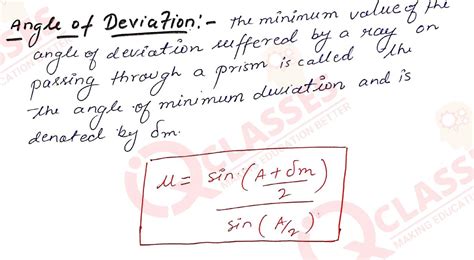 Angle of Deviation:- the minimum value of the
angle of deviation suffered by a ray on
passing through a prism is called the
the angle of minimum deviation and is
denoted by δm.
μ = sin (A + δm / 2) / sin (A/2)
CLASSES
MAKING EDUCATION BETTER
IQ CLASSES
MAKING EDUCATION